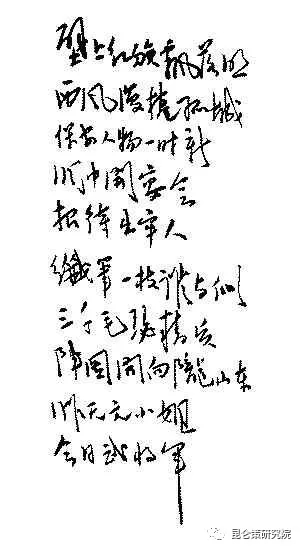 壁上红旗飘落照
西风漫捲孤城
保安人物一时新
洞中開宴会
招待出牢人
纖笔一枝谁与似
三千毛瑟精兵
阵图開向隴山东
昨天文小姐
今日武将军
昆仑策研究院